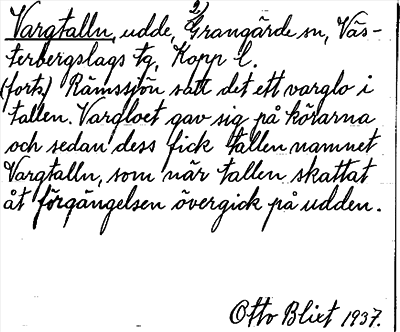 Vargtalln, udde, 2) Grangärde sn, Väs-
terbergslags tg, Kopp l.
(forts) Rämssjön satt det ett varglo i
tallen. Vargloet gav sig på körarna
och sedan dess fick tallen namnet
Vargtalln, som när tallen skattat
åt förgängelsen övergick på udden.
Otto Blixt 1937.